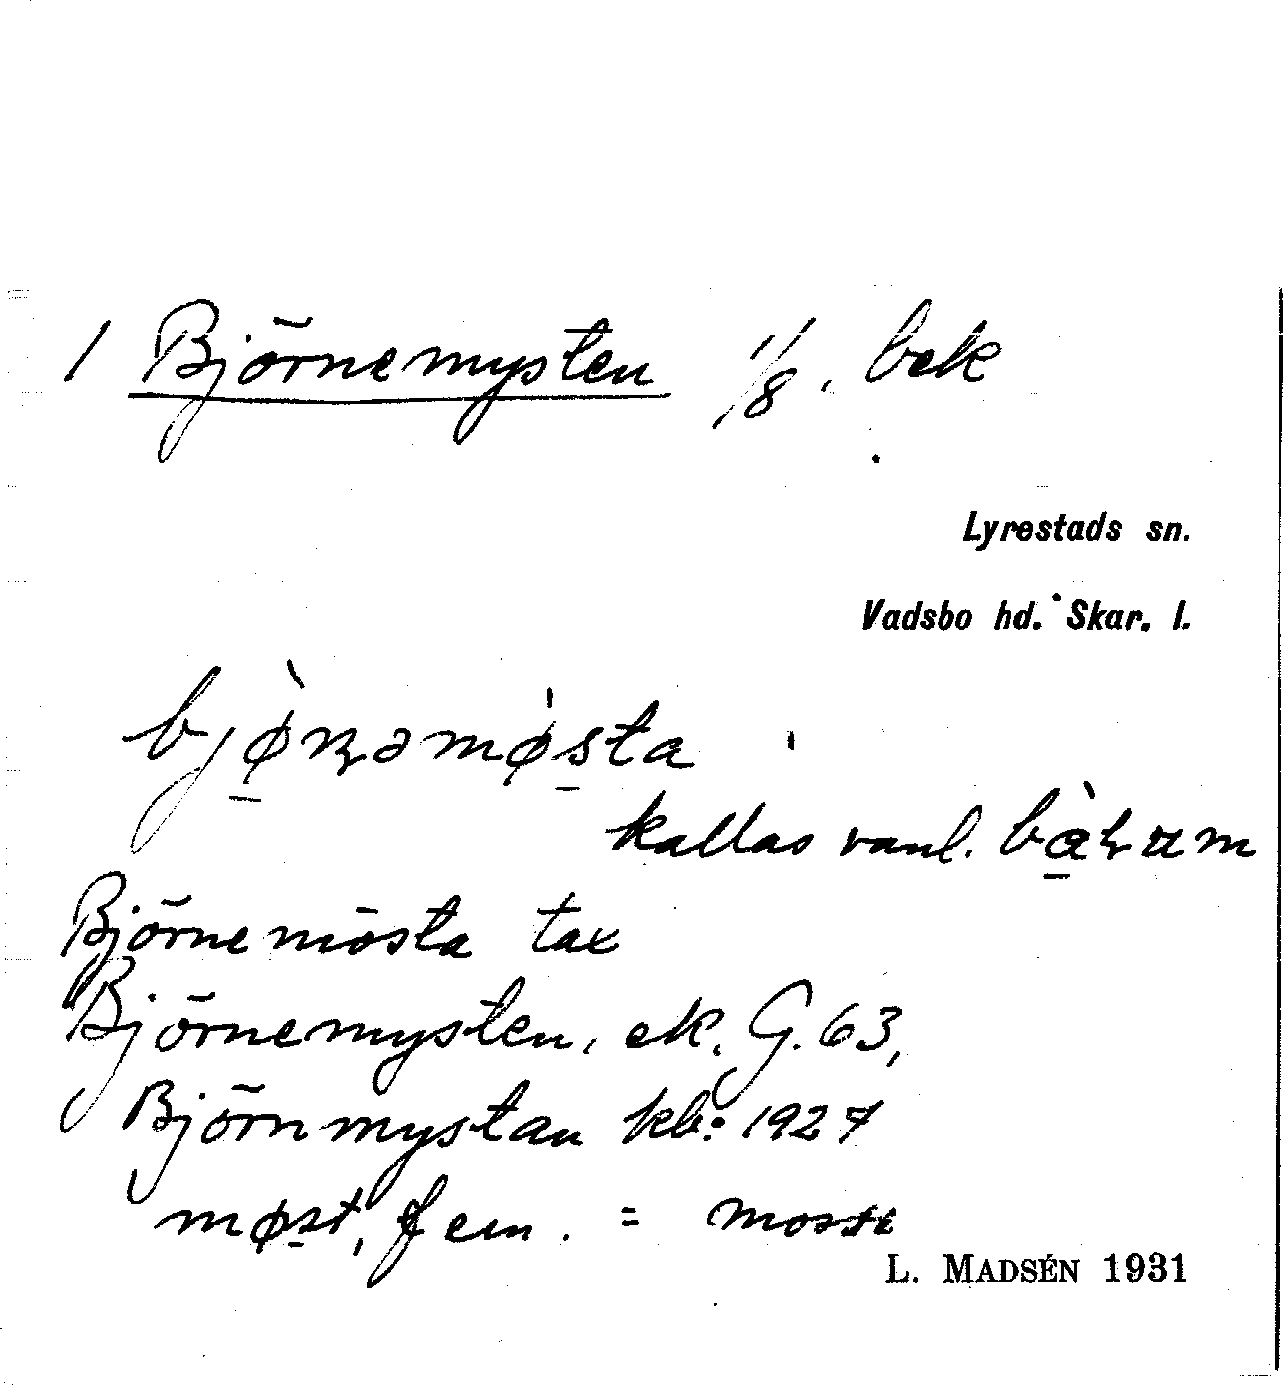 1 Björnemysten 1/8. bek
Lyrestads sn.
Vadsbo hd. Skar. l.
bjø̀ɳəmø̍sta
kallas vanl.
Björnemösta tax
Björnemysten, ek. G. 63,
Björnmystan kb: 1927
møst, fem. = mosse
L. MADSÉN 1931